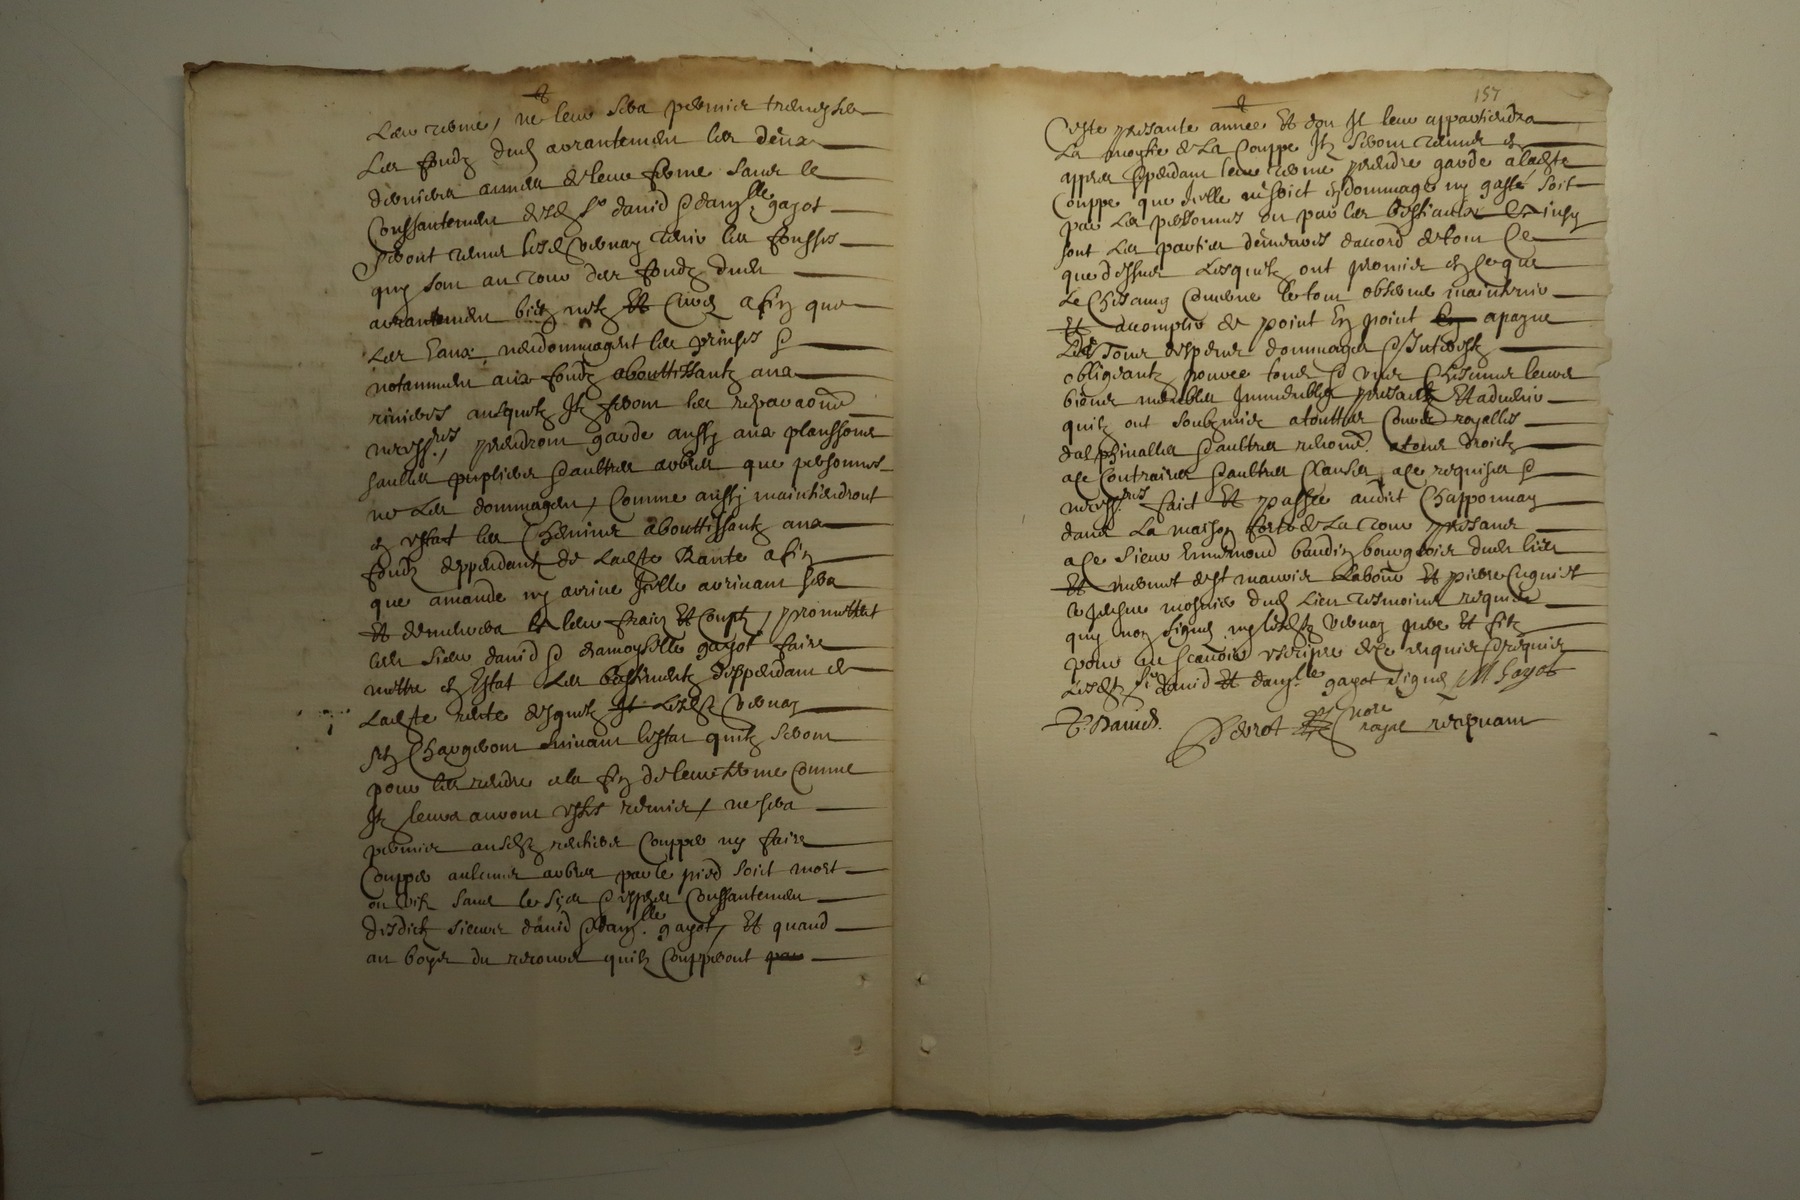 leur terme, ne leur sera permis
les fondz dud arrantement les deux
dernieres années de leur ferme sans le
Conssantement desd Sr david & damlle gayot
seront tenus lesd vernay tenir les fousses
quy sont au tour des fondz dudit
arrantement bien netz Et Curés afin que
Les Eaux nendommagent les prinses &
notamment aux fondz abouttissantz aux
rivieres ausquelz Ilz feront les reparaons
necessres, prendront garde aussy aux planssons
saulles puplies & aultres arbres que personnes
ne Les dommagent, Comme aussy maintiendront
en estat les Chemins abouttissantz aux
fondz deppendantz de Ladte Rante afin
que amande ny arrive Jcelle arrivant sera
Et demeurera a leur fraiz Et Coustz, promettent
lesd sieur david & damoyselle gayot faire
mettre en Estat Les bastimentz deppendant de
Ladte rente desquelz Lesd vernay
se Chargeront suivant lestat quilz seront
pour les rendre a la fin de leur terme Comme
Ilz leurs auront estes remis, ne sera
permis ausd rentiers Coupper ny faire
Coupper aulcuns arbres par le pied soict mort
ou vif sans le sceu & exprés Conssantement
desdictz sieurs david & damlle gayot, Et quand
au boys du quilz coupperont
157
Ceste presante année Et dont Il leur appartiendra
La moytié de La Couppe Ilz seront tenus
appres & pendant leur terme prendre garde a ladte
Couppe que Jcelle ne soict endommagé ny gasté soit
par Les personnes ou par les bestiaux
sont Les parties demeurées daccord de tout Ce
que dessus Lesquelz ont promis en Ce que
Le Chascung Concerne le tout observer maintenir
Et accomplir de point En point a payne
de tous despens dommages & Interestz
obligeantz pour ce tous & ungs Chascuns leurs
biens meubles Immeubles presantz Et advenir
quilz ont soubzmis a touttes Cours royalles
dalphinalles & aultres renons a tous droictz
a ce Contraires & aultres Clauses a ce requises &
necessres faict Et passée audict Chapponnay
dans La maison forte de La tour presans
a ce sieur Ennemond baudin bourgeois dud lieu
Et de St mauris Et pierre Cugniet
dud Lieu tesmoins requis
quy nont signé ny lesd vernay pere Et filz
pour ne scavoir escripre de ce enquis & requis
Lesd sr david Et damlle gayot signés M Gayot
T. David. Perrot nore royal recepvant